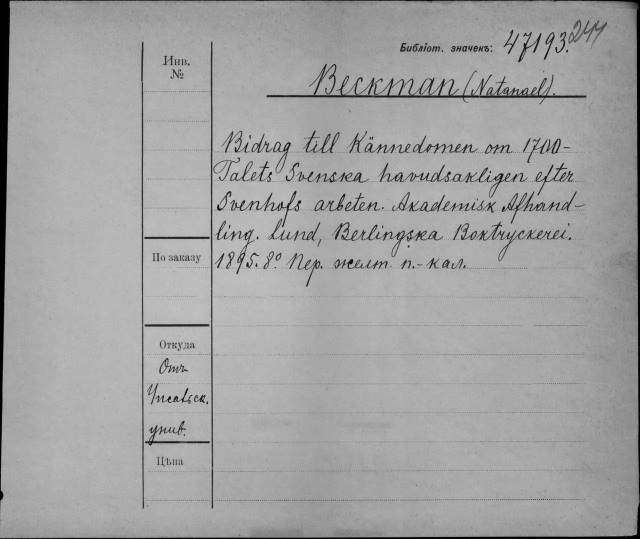 Библіот. значекъ: 47193. 244
Инв.
№
Beckman (Natanael).
Bidrag till Kännedomen om 1700-
Talets Svenska havudsakligen efter
Svenhofs arbeten. Akademisk Afhand-
ling. Lund, Berlingska Boktryckerei.
1895. 8º. Пер. желт. п.-кал.
По заказу
Откуда
Отъ
Упсальск.
унив.
Цѣна